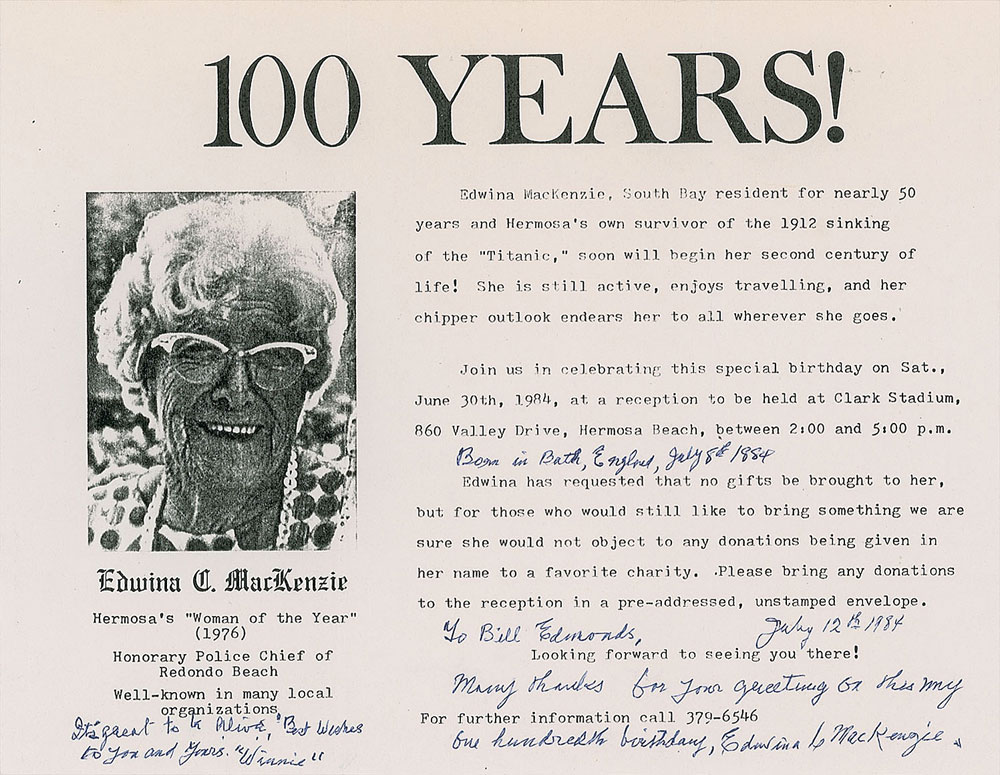 100 YEARS!
Edwina MacKenzie, South Bay resident for nearly 50
years and Hermosa's own survivor of the 1912 sinking
of the "Titanic," soon will begin her second century of
life! She is still active, enjoys travelling, and her
chipper outlook endears her to all wherever she goes.
Join us in celebrating this special birthday on Sat.,
June 30th, 1984, at a reception to be held at Clark Stadium,
860 Valley Drive, Hermosa Beach, between 2:00 and 5:00 p.m.
Born in Bath, England, July 8th 1884
Edwina has requested that no gifts be brought to her,
but for those who would still like to bring something we are
sure she would not object to any donations being given in
her name to a favorite charity. Please bring any donations
to the reception in a pre-addressed, unstamped envelope.
To Bill Edmonds, July 12th 1984
Looking forward to seeing you there!
Many thanks for your greeting on this my
For further information call 379-6546
one hundredth birthday, Edwina C MacKenzie.
Edwina C. MacKenzie
Hermosa's "Woman of the Year"
(1976)
Honorary Police Chief of
Redondo Beach
Well-known in many local
organizations
It's great to be Alive, Best Wishes
to you and yours. "Winnie"